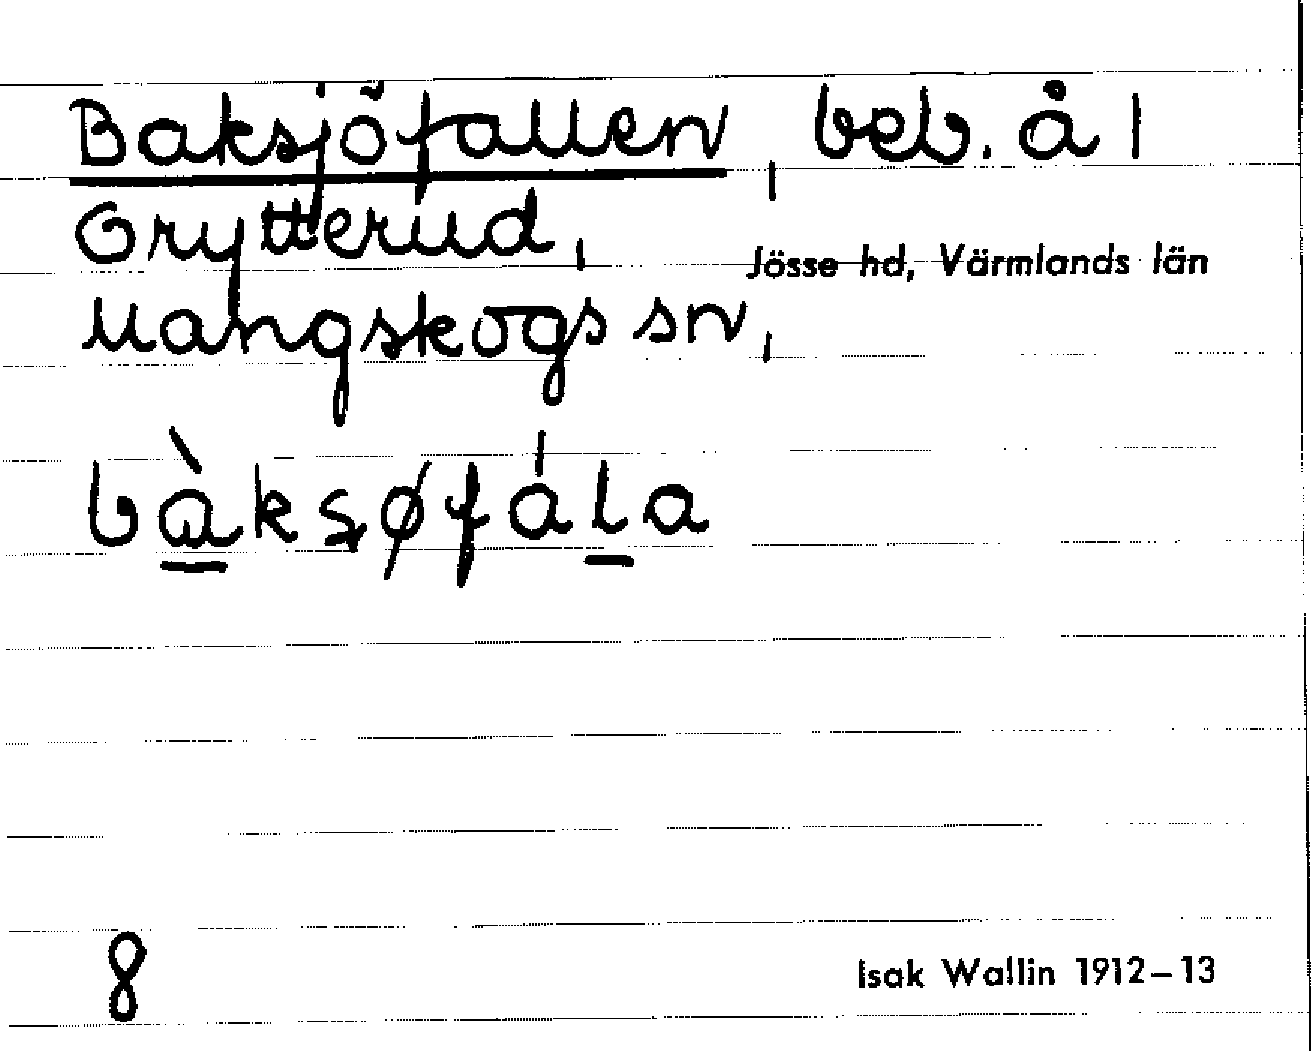 Baksjöfallen, beb. å 1
Grytterud,
Jösse hd, Värmlands län
Mangskogs sn,
bàksøfála
8
Isak Wallin 1912–13